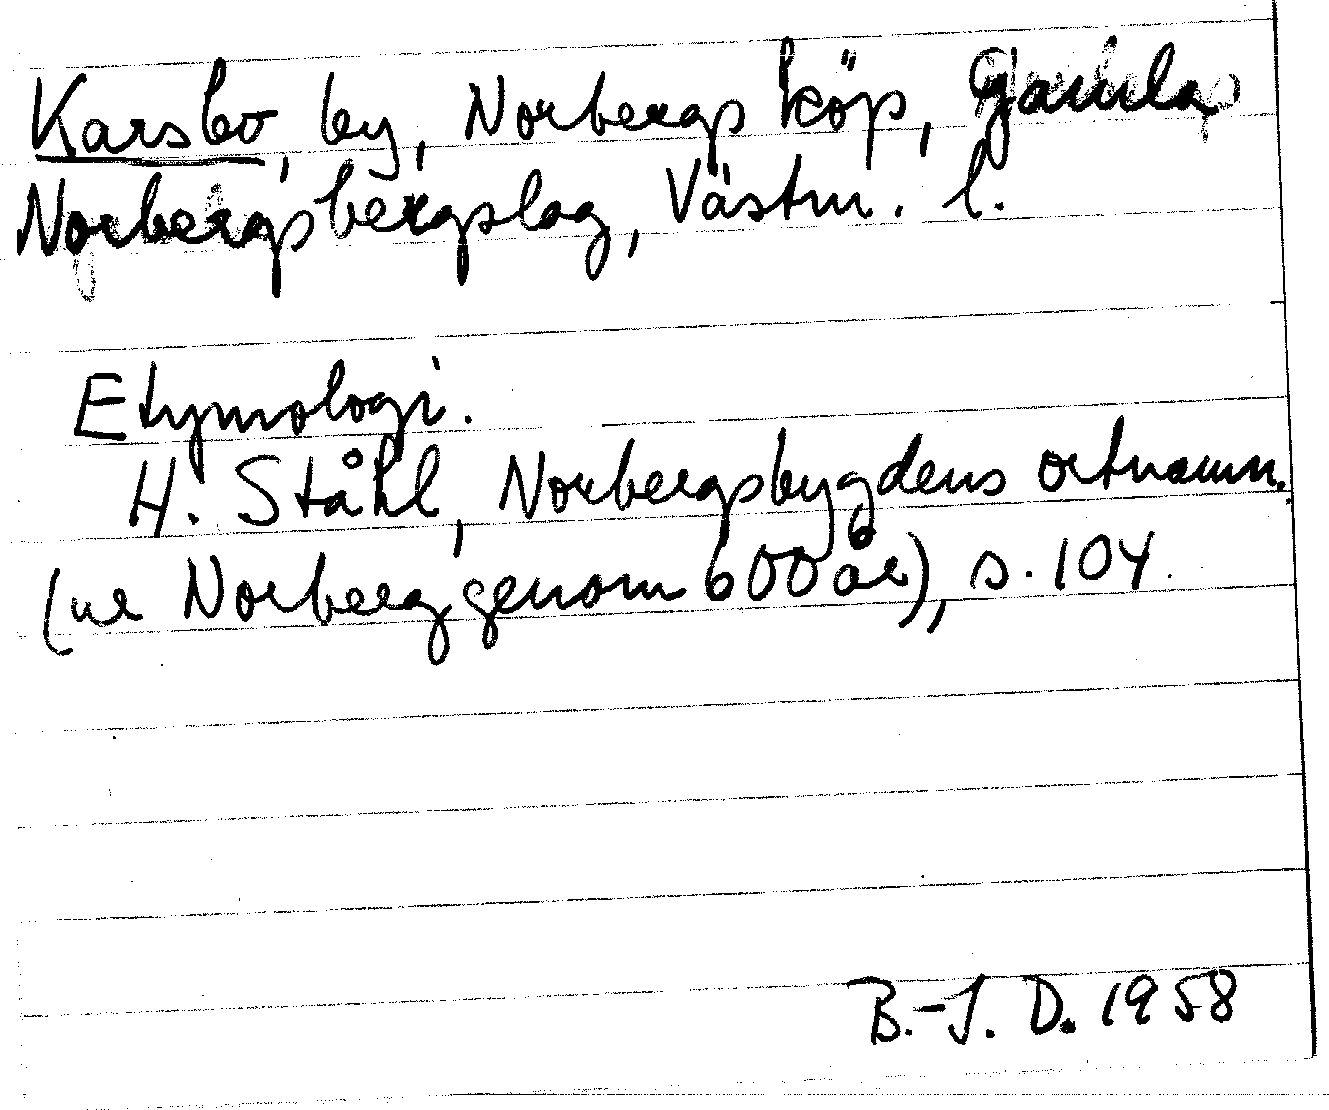 Karsbo, by, Norbergs köp, Gamla
Norbergsbergslag, Västm. l.
Etymologi.
H. Ståhl, Norbergsbygdens ortnamn.
(ur Norberg genom 600 år), s. 104.
B.-J. D. 1958